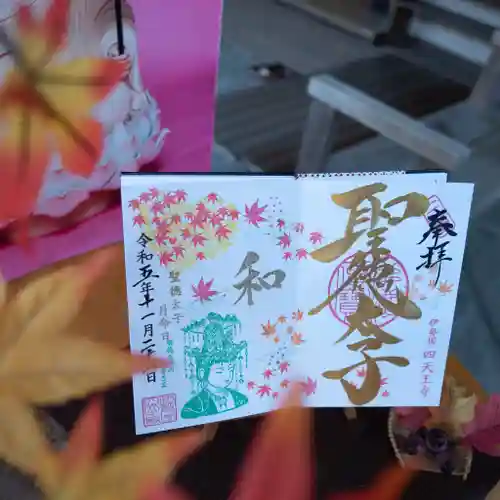 奉拝
伊勢国 四天王寺
聖徳太子
和
聖徳太子
月命日
令和五年十一月二十二日